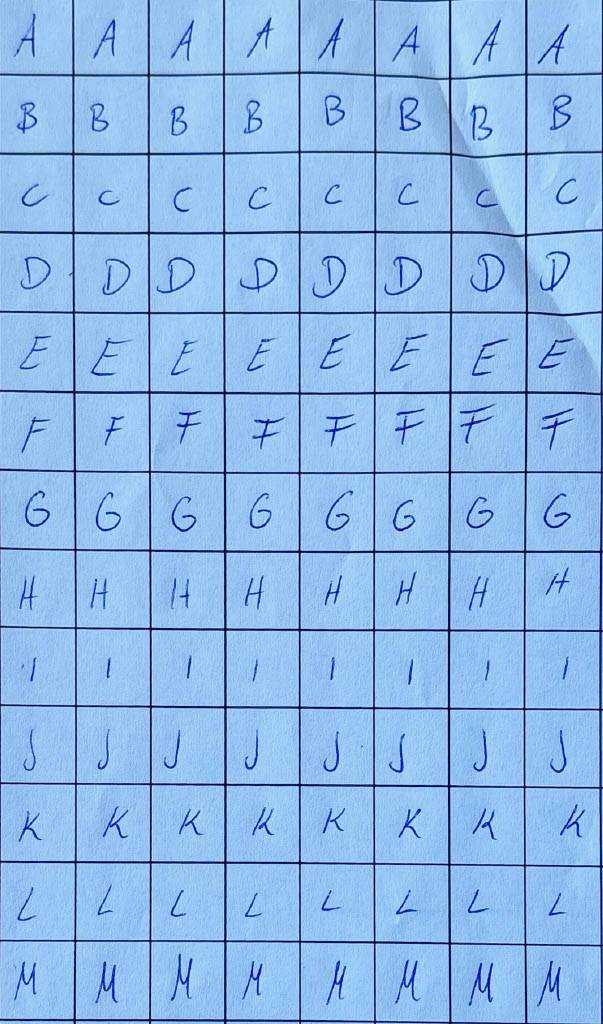 A A A A A A A A
B B B B B B B B
C C C C C C C C
D D D D D D D D
E E E E E E E E
F F F F F F F F
G G G G G G G G
H H H H H H H H
I I I I I I I I
J J J J J J J J
K K K K K K K K
L L L L L L L L
M M M M M M M M